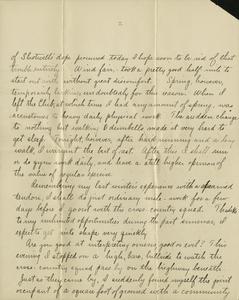 2
of Shotwell's dope perused today I hope soon to be rid of that
trouble entirely. Wind fair, took a pretty good half-mile to
start out with without great discomfort. Spring, however,
temporarily lacking, undoubtedly for this reason. When I
left the Club, at which time I had any amount of spring, was
accustomed to heavy daily physical work. The sudden change
to nothing but walking & dumbbells made it very hard to
get sleep tonight, however, after hard mowing and a long
walk, I warrant the best of rest. After this I shall
do gym work daily, and have a still higher opinion of
the value of regular exercise.
Remembering my last winter's experience with a sprained
tendon, I shall do just ordinary mile-work for a few
days before I go out with the cross country squad. Thanks
to my unlimited opportunities during the past summer, I
expect to get into shape very quickly.
Are you good at interpreting omens, good or evil? This
evening I stopped on a high, bare, hillside to watch the
cross-country squad pass by on the highway beneath.
Just as they came by, I suddenly found myself the joint
occupant of a square foot of ground with a community